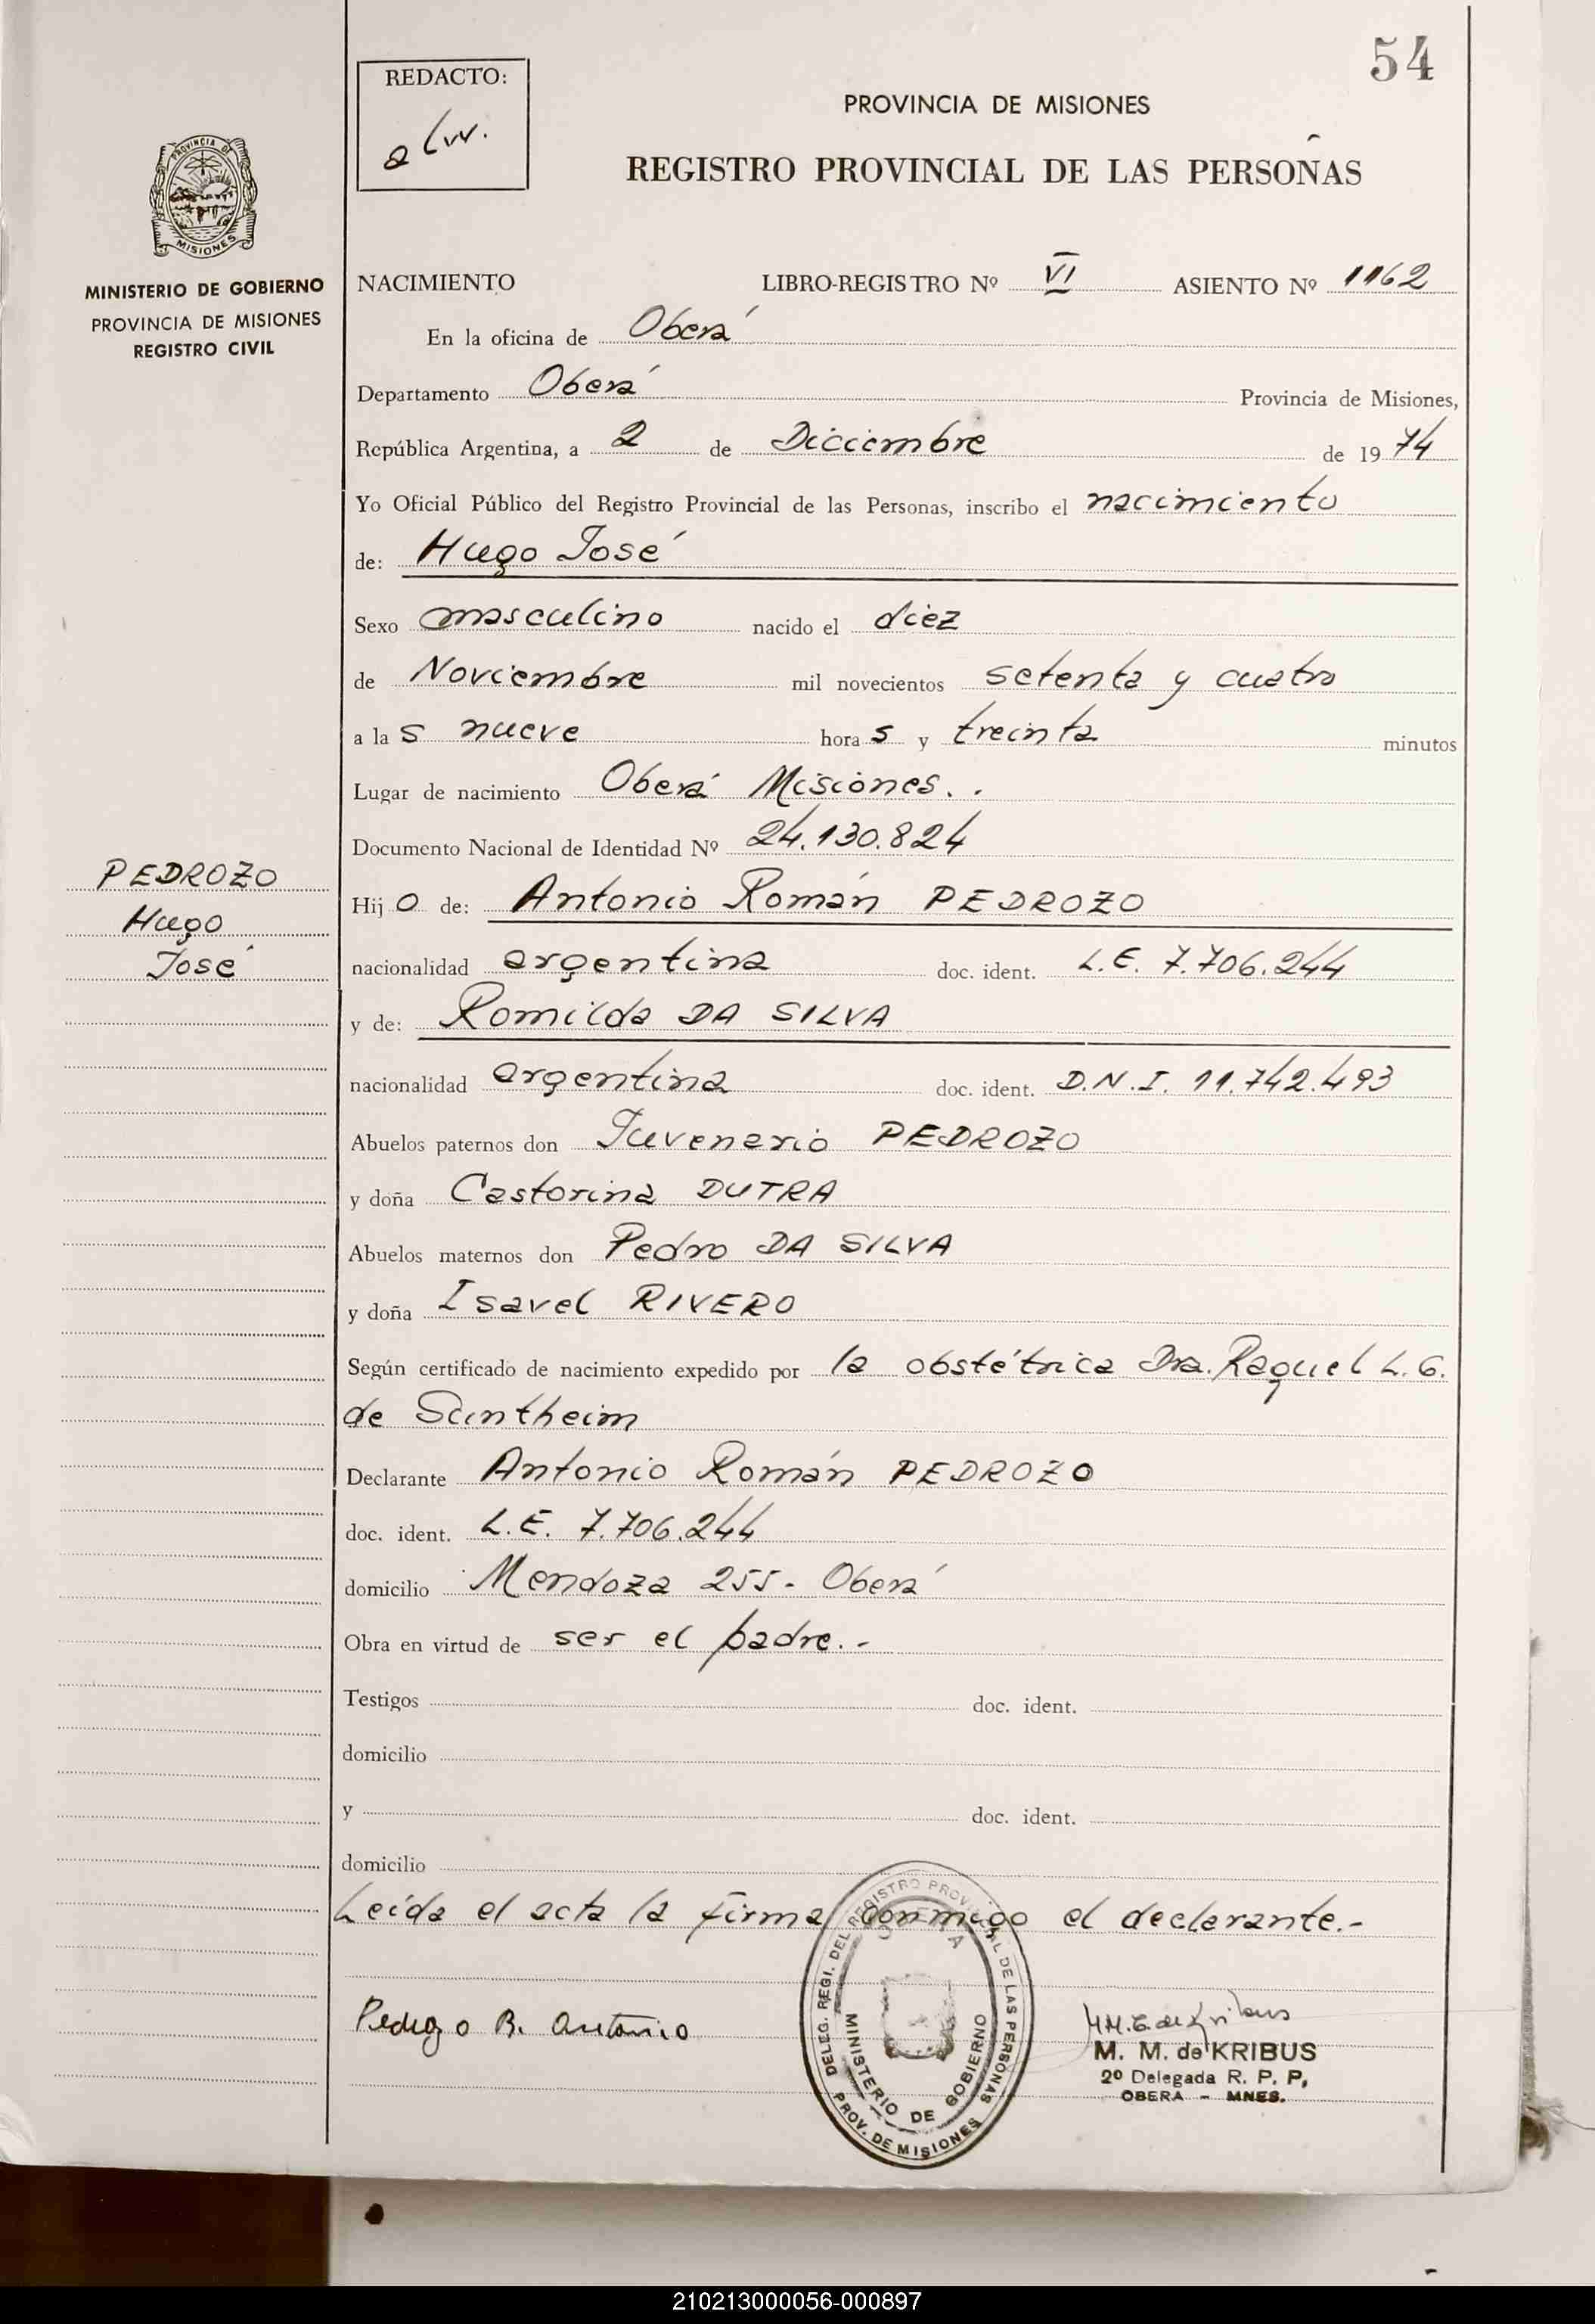 54
REDACTO:
PROVINCIA DE MISIONES
REGISTRO PROVINCIAL DE LAS PERSONAS
PROVINCIA DE
MISIONES
MINISTERIO DE GOBIERNO
PROVINCIA DE MISIONES
REGISTRO CIVIL
NACIMIENTO LIBRO-REGISTRO Nº VI ASIENTO Nº 1162
En la oficina de Oberá
Departamento Oberá Provincia de Misiones,
República Argentina, a 2 de Diciembre de 1974
Yo Oficial Público del Registro Provincial de las Personas, inscribo el nacimiento
de: Hugo José
Sexo masculino nacido el diez
de Noviembre mil novecientos setenta y cuatro
a las nueve horas y treinta minutos
Lugar de nacimiento Oberá Misiones..
Documento Nacional de Identidad Nº 24.130.824
PEDROZO
Hugo
José
Hijo de: Antonio Román PEDROZO
nacionalidad argentina doc. ident. L.E. 7.706.244
y de: Romilda DA SILVA
nacionalidad argentina doc. ident. D.N.I. 11.742.493
Abuelos paternos don Juvenario PEDROZO
y doña Castorina DUTRA
Abuelos maternos don Pedro DA SILVA
y doña Isavel RIVERO
Según certificado de nacimiento expedido por la obstétrica Dra. Raquel L.G.
de Suntheim
Declarante Antonio Román PEDROZO
doc. ident. L.E. 7.706.244
domicilio Mendoza 255- Oberá
Obra en virtud de ser el padre.-
Testigos doc. ident.
domicilio
y doc. ident.
domicilio
Leída el acta la firma conmigo el declarante.-
DELEG. REGI. DEL REGISTRO PROVINCIAL DE LAS PERSONAS
OBERA
MINISTERIO DE GOBIERNO
PROV. DE MISIONES
Pedrozo R. Antonio
M. M. de KRIBUS
2º Delegada R. P. P.
OBERA - MNES.
210213000056-000897